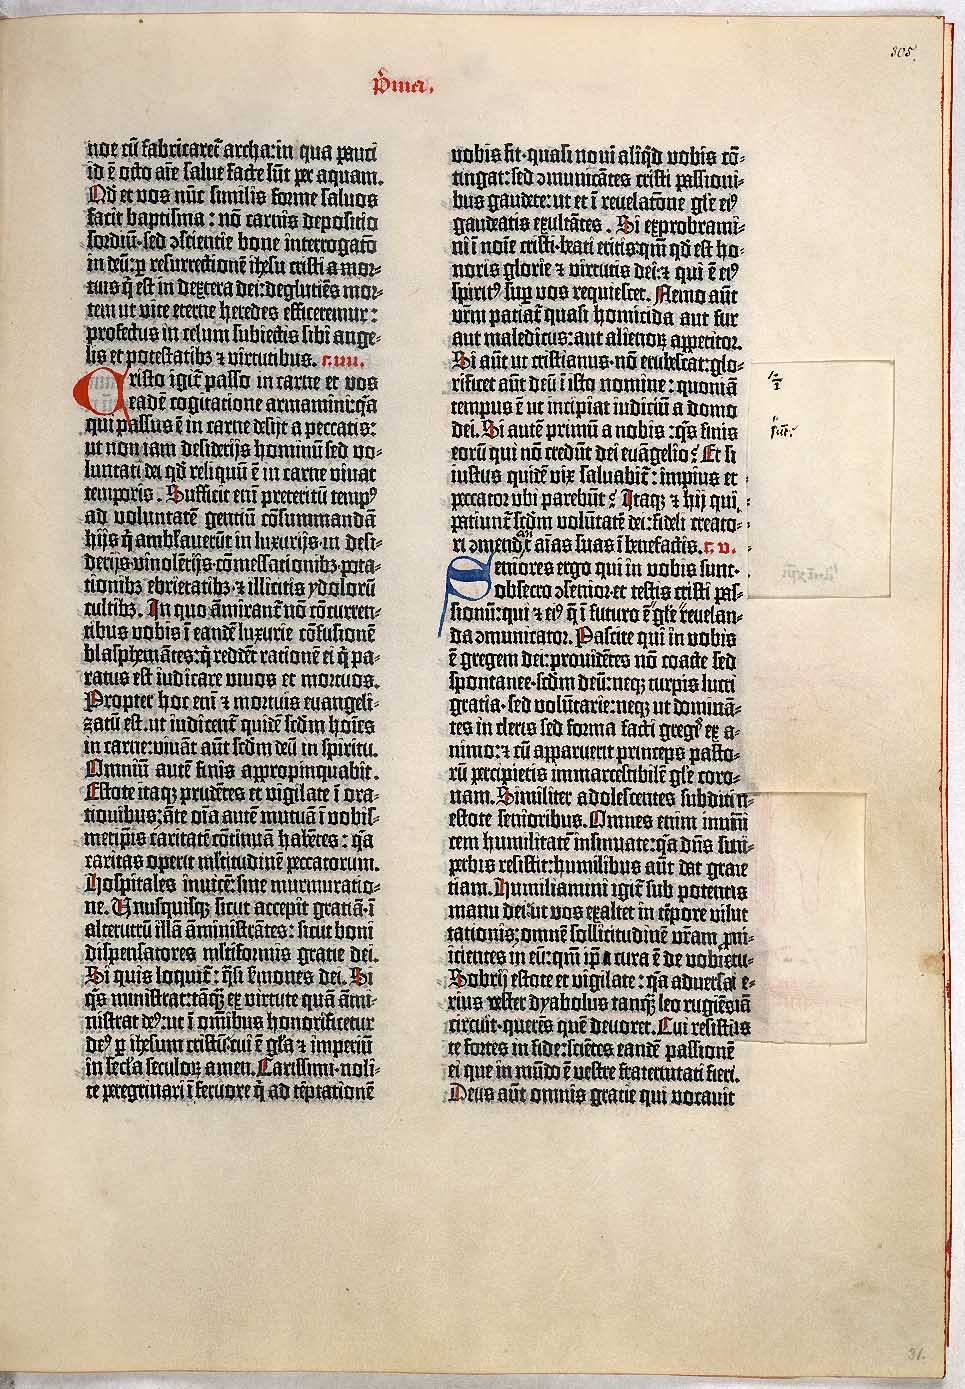 305.
Prima.
noe cū fabricaret᷑ archa: in qua pauci
id ē octo aīe salue facte sūt per aquam.
Qd et vos nūc similis forme saluos
facit baptisma: nō carnis depositio
sordiū· sed ꝯscientie bone interrogatō
in deū: p resurrectionē ihesu cristi a mor-
tuis q̄ est in dextera dei: deglutiēs mor-
tem ut vite eterne heredes efficeremur:
profectus in celum subiectis sibi ange-
lis et potestatibꝫ ⁊ virtutibus. c. iiii.
Cristo igit᷑ passo in carne et vos
eadē cogitatione armamini: q̄a
qui passus ē in carne desijt a peccatis:
ut non iam desiderijs hominū sed vo-
luntati dei qd reliquū ē in carne vivat
temporis. Sufficit enī preteritū tempꝰ
ad voluntatē gentiū cōsummandā
hijs q̄ ambulaverūt in luxurijs· in desi-
derijs· vinolētijs· cōmessationibꝫ· pota-
tionibꝫ ebrietatibꝫ· ⁊ illicitis ydolorū
cultibꝫ. In quo āmirant᷑ nō cōcurren-
tibus vobis ī eandē luxurie cōfusionē
blasphemātes: q̄ reddēt rationē ei q̄ pa-
ratus est iudicare vivos et mortuos.
Propter hoc enī ⁊ mortuis euangeli-
zatū est· ut iudicent᷑ quidē scdm hoīes
in carne: vivāt aūt scdm deū in spiritu.
Omniū autē finis appropinquabit.
Estote itaqꝫ prudētes et vigilate ī ora-
tionibus: āte oīa autē mutuā ī vobis-
metipīs caritatē cōtinuā habētes: q̄a
caritas operit mltitudinē peccatorum.
Hospitales invicē: sine murmuratio-
ne. Unusquisqꝫ sicut accepit gratiā· ī
alterutrū illā āministrātes: sicut boni
dispensatores mltiformis gratie dei.
Si quis loquit᷑: q̄si s̄mones dei. Si
q̄s ministrat: tāqꝫ ex virtute quā āmi-
nistrat deꝰ: ut ī omībus honorificetur
deꝰ p ihesum cristū: cui ē gl̄a ⁊ imperiū
in secl̄a seculoꝝ amen. Carissimi· noli-
te peregrinari ī fervore q̄ ad tēptationē
vobis fit· quasi novi aliqd vobis cō-
tingat: sed ꝯmunicātes cristi passioni-
bus gaudete: ut et ī revelatōne gl̄e eiꝰ
gaudeatis exultātes. Si exprobrami-
ni ī noīe cristi· beati eritis: qm̄ qd est ho-
noris glorie ⁊ virtutis dei: ⁊ qui ē eiꝰ
spiritꝰ sup vos requiescet. Nemo aūt
vr̄m patiat᷑ quasi homicida aut fur
aut maledicus: aut alienoꝝ appetitor.
Si aūt ut cristianus· nō erubescat: glo-
rificet aūt deū ī isto nomine: quoniā
tempus ē ut incipiat iudiciū a domo
dei. Si autē primū a nobis: q̄s finis
eorū qui nō credūt dei euāgelio? Et si
iustus quidē vix salvabit᷑: impius et
peccator ubi parebūt? Itaqꝫ ⁊ hij qui
patiunt᷑ scdm volūtatē dei: fideli creato-
ri ꝯmendāt aīas suas ī benefactis. c. v.
Seniores ergo qui in vobis sunt·
obsecro ꝯsenior· et testis cristi pas-
sionū: qui ⁊ eiꝰ q̄ ī futuro ē gl̄e revelan-
da ꝯmunicator. Pascite qui in vobis
ē gregem dei: providētes nō coacte sed
spontanee· scdm deū: neqꝫ turpis lucri
gratia· sed volūtarie: neqꝫ ut dominā-
tes in cleris sed forma facti gregis ex a-
nimo: ⁊ cū apparuerit princeps pasto-
rū percipietis immarcescibilē gl̄e coro-
nam. Similiter adolescentes subditi
estote senioribus. Omnes enim invicē
humilitatē insinuate: q̄a dn̄s super-
bis resistit: humilibus aūt dat gratiam.
Humiliamini igit᷑ sub potenti
manu dei: ut vos exaltet in tēpore visi-
tationis: omnē sollicitudinē vr̄am pni-
icientes in eū: qm̄ ip̄i cura ē de vobis.
Sobrij estote et vigilate: q̄a adversa-
rius vester dyabolus tanqꝫ leo rugiēs
circuit· querēs quē devoret. Cui resisti-
te fortes in fide: sciētes eandē passionē
ei que in mūdo ē vestre fraternitati fieri.
Deus aūt omnis gratie qui vocavit
31.